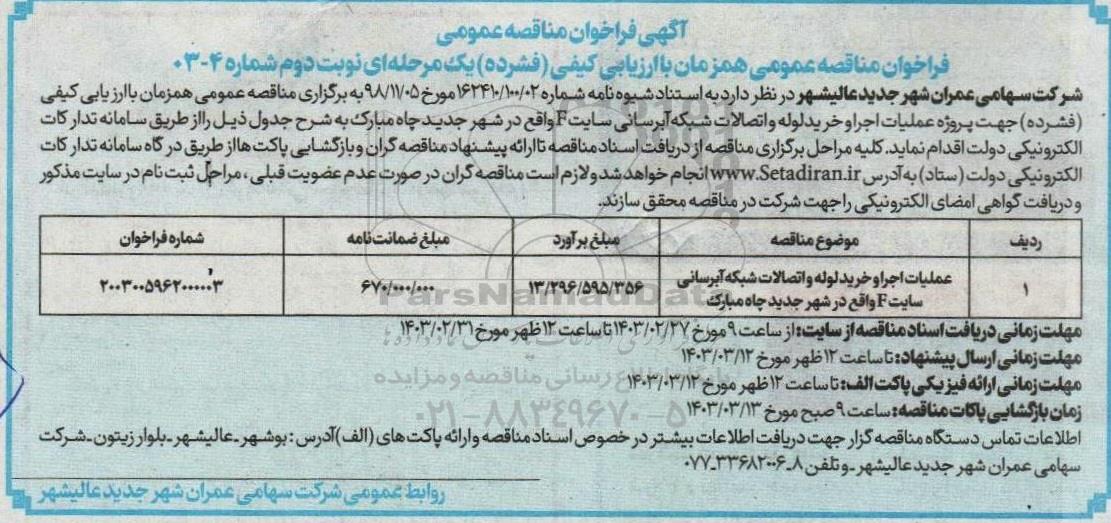 آگهی فراخوان مناقصه عمومی
فراخوان مناقصه عمومی همزمان با ارزیابی کیفی (فشرده) یک مرحله‌ای نوبت دوم شماره ۴-۰۳
شرکت سهامی عمران شهر جدید عالیشهر در نظر دارد به استناد شیوه نامه شماره ۱۶۲۴۱۰/۱۰۰/۰۲ مورخ ۹۸/۱۱/۰۵ به برگزاری مناقصه عمومی همزمان با ارزیابی کیفی
(فشرده) جهت پروژه عملیات اجرا و خرید لوله و اتصالات شبکه آبرسانی سایت F واقع در شهر جدید چاه مبارک به شرح جدول ذیل را از طریق سامانه تدارکات
الکترونیکی دولت اقدام نماید. کلیه مراحل برگزاری مناقصه از دریافت اسناد مناقصه تا ارائه پیشنهاد مناقصه گران و بازگشایی پاکت ها از طریق درگاه سامانه تدارکات
الکترونیکی دولت (ستاد) به آدرس www.Setadiran.ir انجام خواهد شد و لازم است مناقصه گران در صورت عدم عضویت قبلی، مراحل ثبت نام در سایت مذکور
و دریافت گواهی امضای الکترونیکی را جهت شرکت در مناقصه محقق سازند.
ردیف موضوع مناقصه مبلغ برآورد مبلغ ضمانت نامه شماره فراخوان
۱ عملیات اجرا و خرید لوله و اتصالات شبکه آبرسانی ۱۳/۲۹۶/۵۹۵/۳۵۶ ۶۷۰/۰۰۰/۰۰۰ ۲۰۰۳۰۰۵۹۶۲۰۰۰۰۰۳
سایت F واقع در شهر جدید چاه مبارک
ParsNamadData
مهلت زمانی دریافت اسناد مناقصه از سایت: از ساعت ۹ مورخ ۱۴۰۳/۰۲/۲۷ تا ساعت ۱۲ ظهر مورخ ۱۴۰۳/۰۲/۳۱
مهلت زمانی ارسال پیشنهاد: تا ساعت ۱۲ ظهر مورخ ۱۴۰۳/۰۳/۱۲
مهلت زمانی ارائه فیزیکی پاکت الف: تا ساعت ۱۲ ظهر مورخ ۱۴۰۳/۰۳/۱۲
رسانی مناقصه و مزایده
زمان بازگشایی پاکات مناقصه: ساعت ۹ صبح مورخ ۱۴۰۳/۰۳/۱۳
۰۲۱-۸۸۳۴۹۶۷۰-۵
اطلاعات تماس دستگاه مناقصه گزار جهت دریافت اطلاعات بیشتر در خصوص اسناد مناقصه و ارائه پاکت های (الف) آدرس: بوشهر ـ عالیشهر ـ بلوار زیتون ـ شرکت
سهامی عمران شهر جدید عالیشهر ـ و تلفن ۸ـ۳۳۶۸۲۰۰۶ـ۰۷۷
روابط عمومی شرکت سهامی عمران شهر جدید عالیشهر